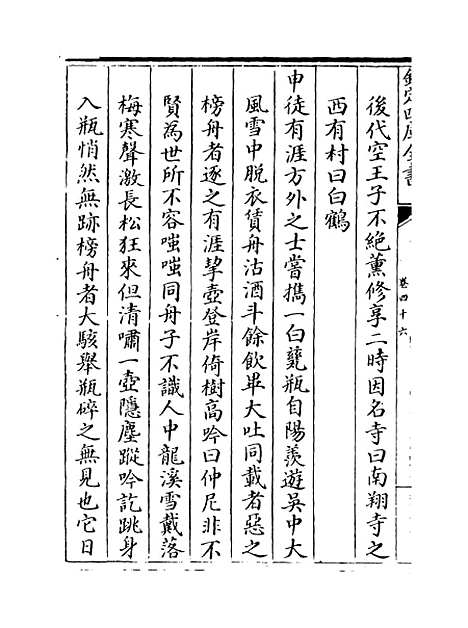 欽定四庫全書
卷四十六
後代空王子不絶薰修享二時因名寺曰南翔寺之
西有村曰白鶴
申徒有涯方外之士嘗攜一白甆瓶自陽羨遊吳中大
風雪中脱衣賃舟沽酒斗餘飲畢大吐同載者惡之
榜舟者逐之有涯挈壺登岸倚樹高吟曰仲尼非不
賢為世所不容嗤嗤同舟子不識人中龍溪雪戴落
梅寒聲激長松狂來但清嘯一壺隱塵蹤吟訖跳身
入瓶悄然無跡榜舟者大駭舉瓶碎之無見也它日